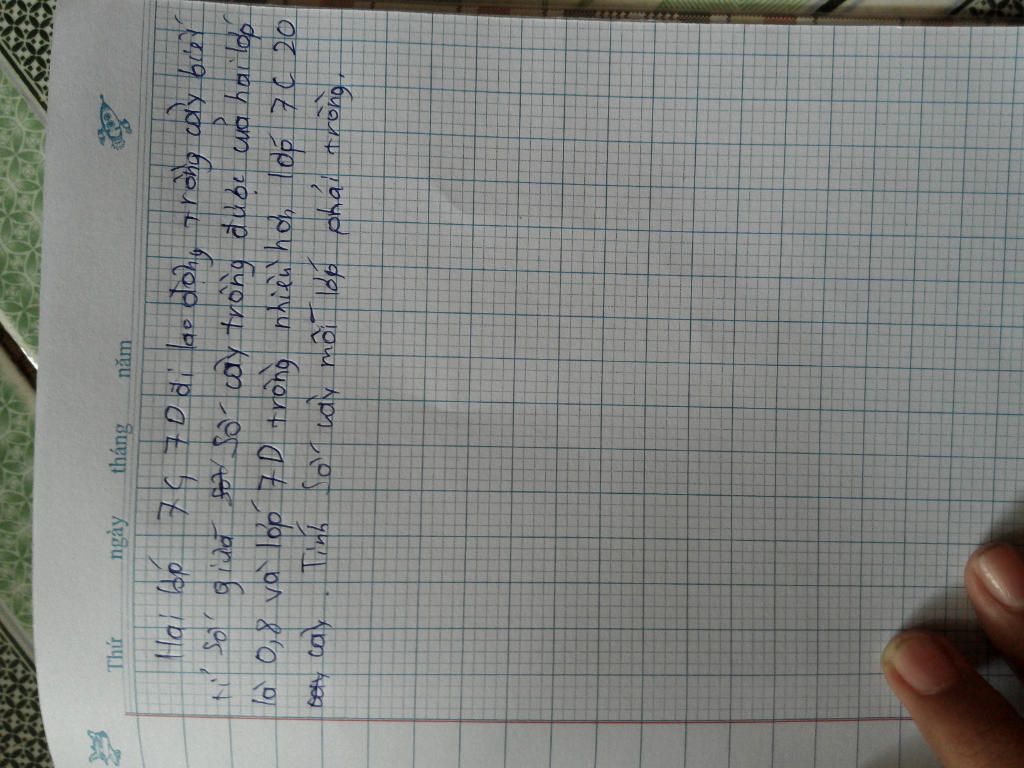 Thứ ngày tháng năm
Hai lớp 7C, 7D đi lao động trồng cây biết
tỉ số giữa số cây trồng được của hai lớp
là 0,8 và lớp 7D trồng nhiều hơn lớp 7C 20
cây. Tính số cây mỗi lớp phải trồng.